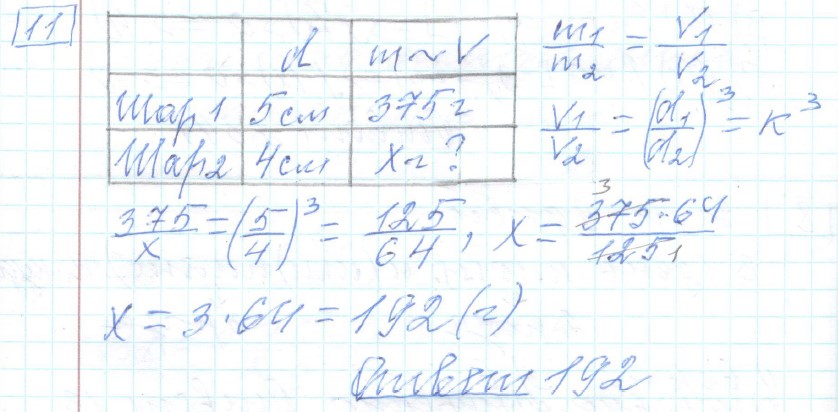 11
d m~V
Шар 1 5см 375г
Шар 2 4см xг?
m1/m2 = V1/V2
V1/V2 = (d1/d2)^3 = к^3
375/x = (5/4)^3 = 125/64, x = 375·64/125 3 1
x = 3·64 = 192 (г)
Ответ 192